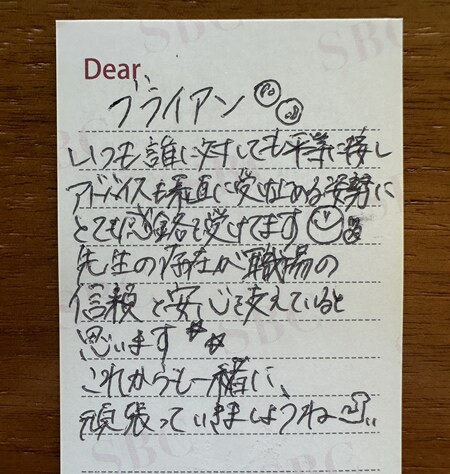 Dear
ブライアン
いつも誰に対しても平等に接し
アドバイスも素直に受け止める姿勢に
とても感銘を受けてます
先生の存在が職場の
信頼と安心を支えていると
思います
これからも一緒に、
頑張っていきましょうね
SBC